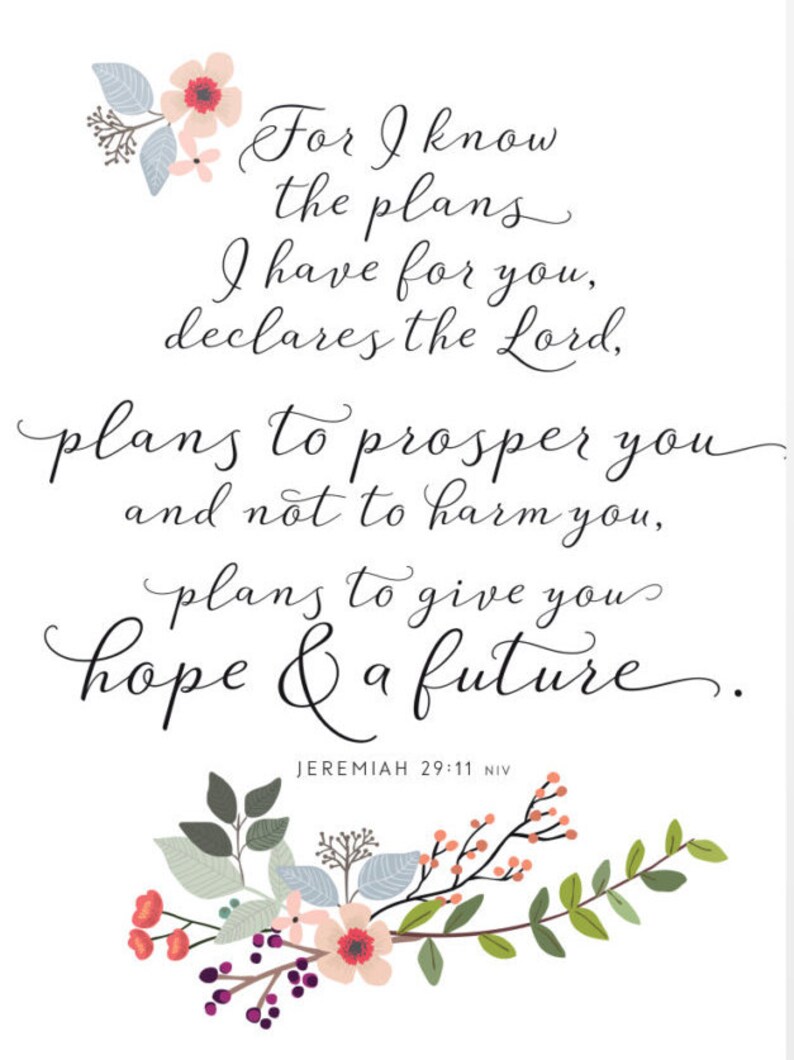 For I know
the plans
I have for you,
declares the Lord,
plans to prosper you
and not to harm you,
plans to give you
hope & a future.
JEREMIAH 29:11 NIV